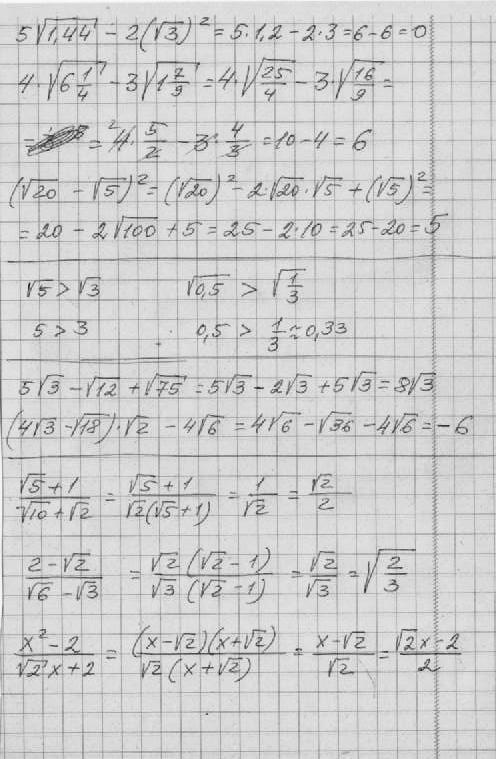 5√1,44 − 2(√3)² = 5·1,2 − 2·3 = 6 − 6 = 0
4·√(6 1/4) − 3√(1 7/9) = 4·√(25/4) − 3·√(16/9) =
= ²4·5/2 − 3·4/3 = 10 − 4 = 6
(√20 − √5)² = (√20)² − 2√20·√5 + (√5)² =
= 20 − 2√100 + 5 = 25 − 2·10 = 25 − 20 = 5
√5 > √3 √0,5 > √(1/3)
5 > 3 0,5 > 1/3 ≈ 0,33
5√3 − √12 + √75 = 5√3 − 2√3 + 5√3 = 8√3
(4√3 − √18)·√2 − 4√6 = 4√6 − √36 − 4√6 = −6
(√5 + 1)/(√10 + √2) = (√5 + 1)/(√2(√5 + 1)) = 1/√2 = √2/2
(2 − √2)/(√6 − √3) = (√2(√2 − 1))/(√3(√2 − 1)) = √2/√3 = √(2/3)
(x² − 2)/(√2x + 2) = ((x − √2)(x + √2))/(√2(x + √2)) = (x − √2)/√2 = (√2x − 2)/2